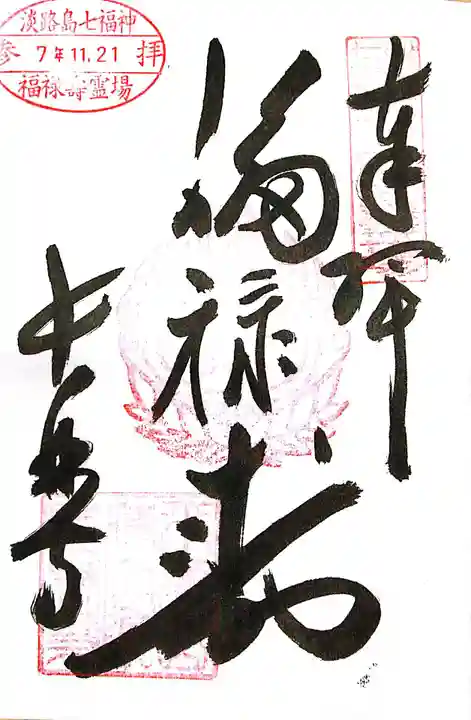 淡路島七福神
参 7年11.21 拝
福禄壽霊場
奉拝
福禄寿
長林寺